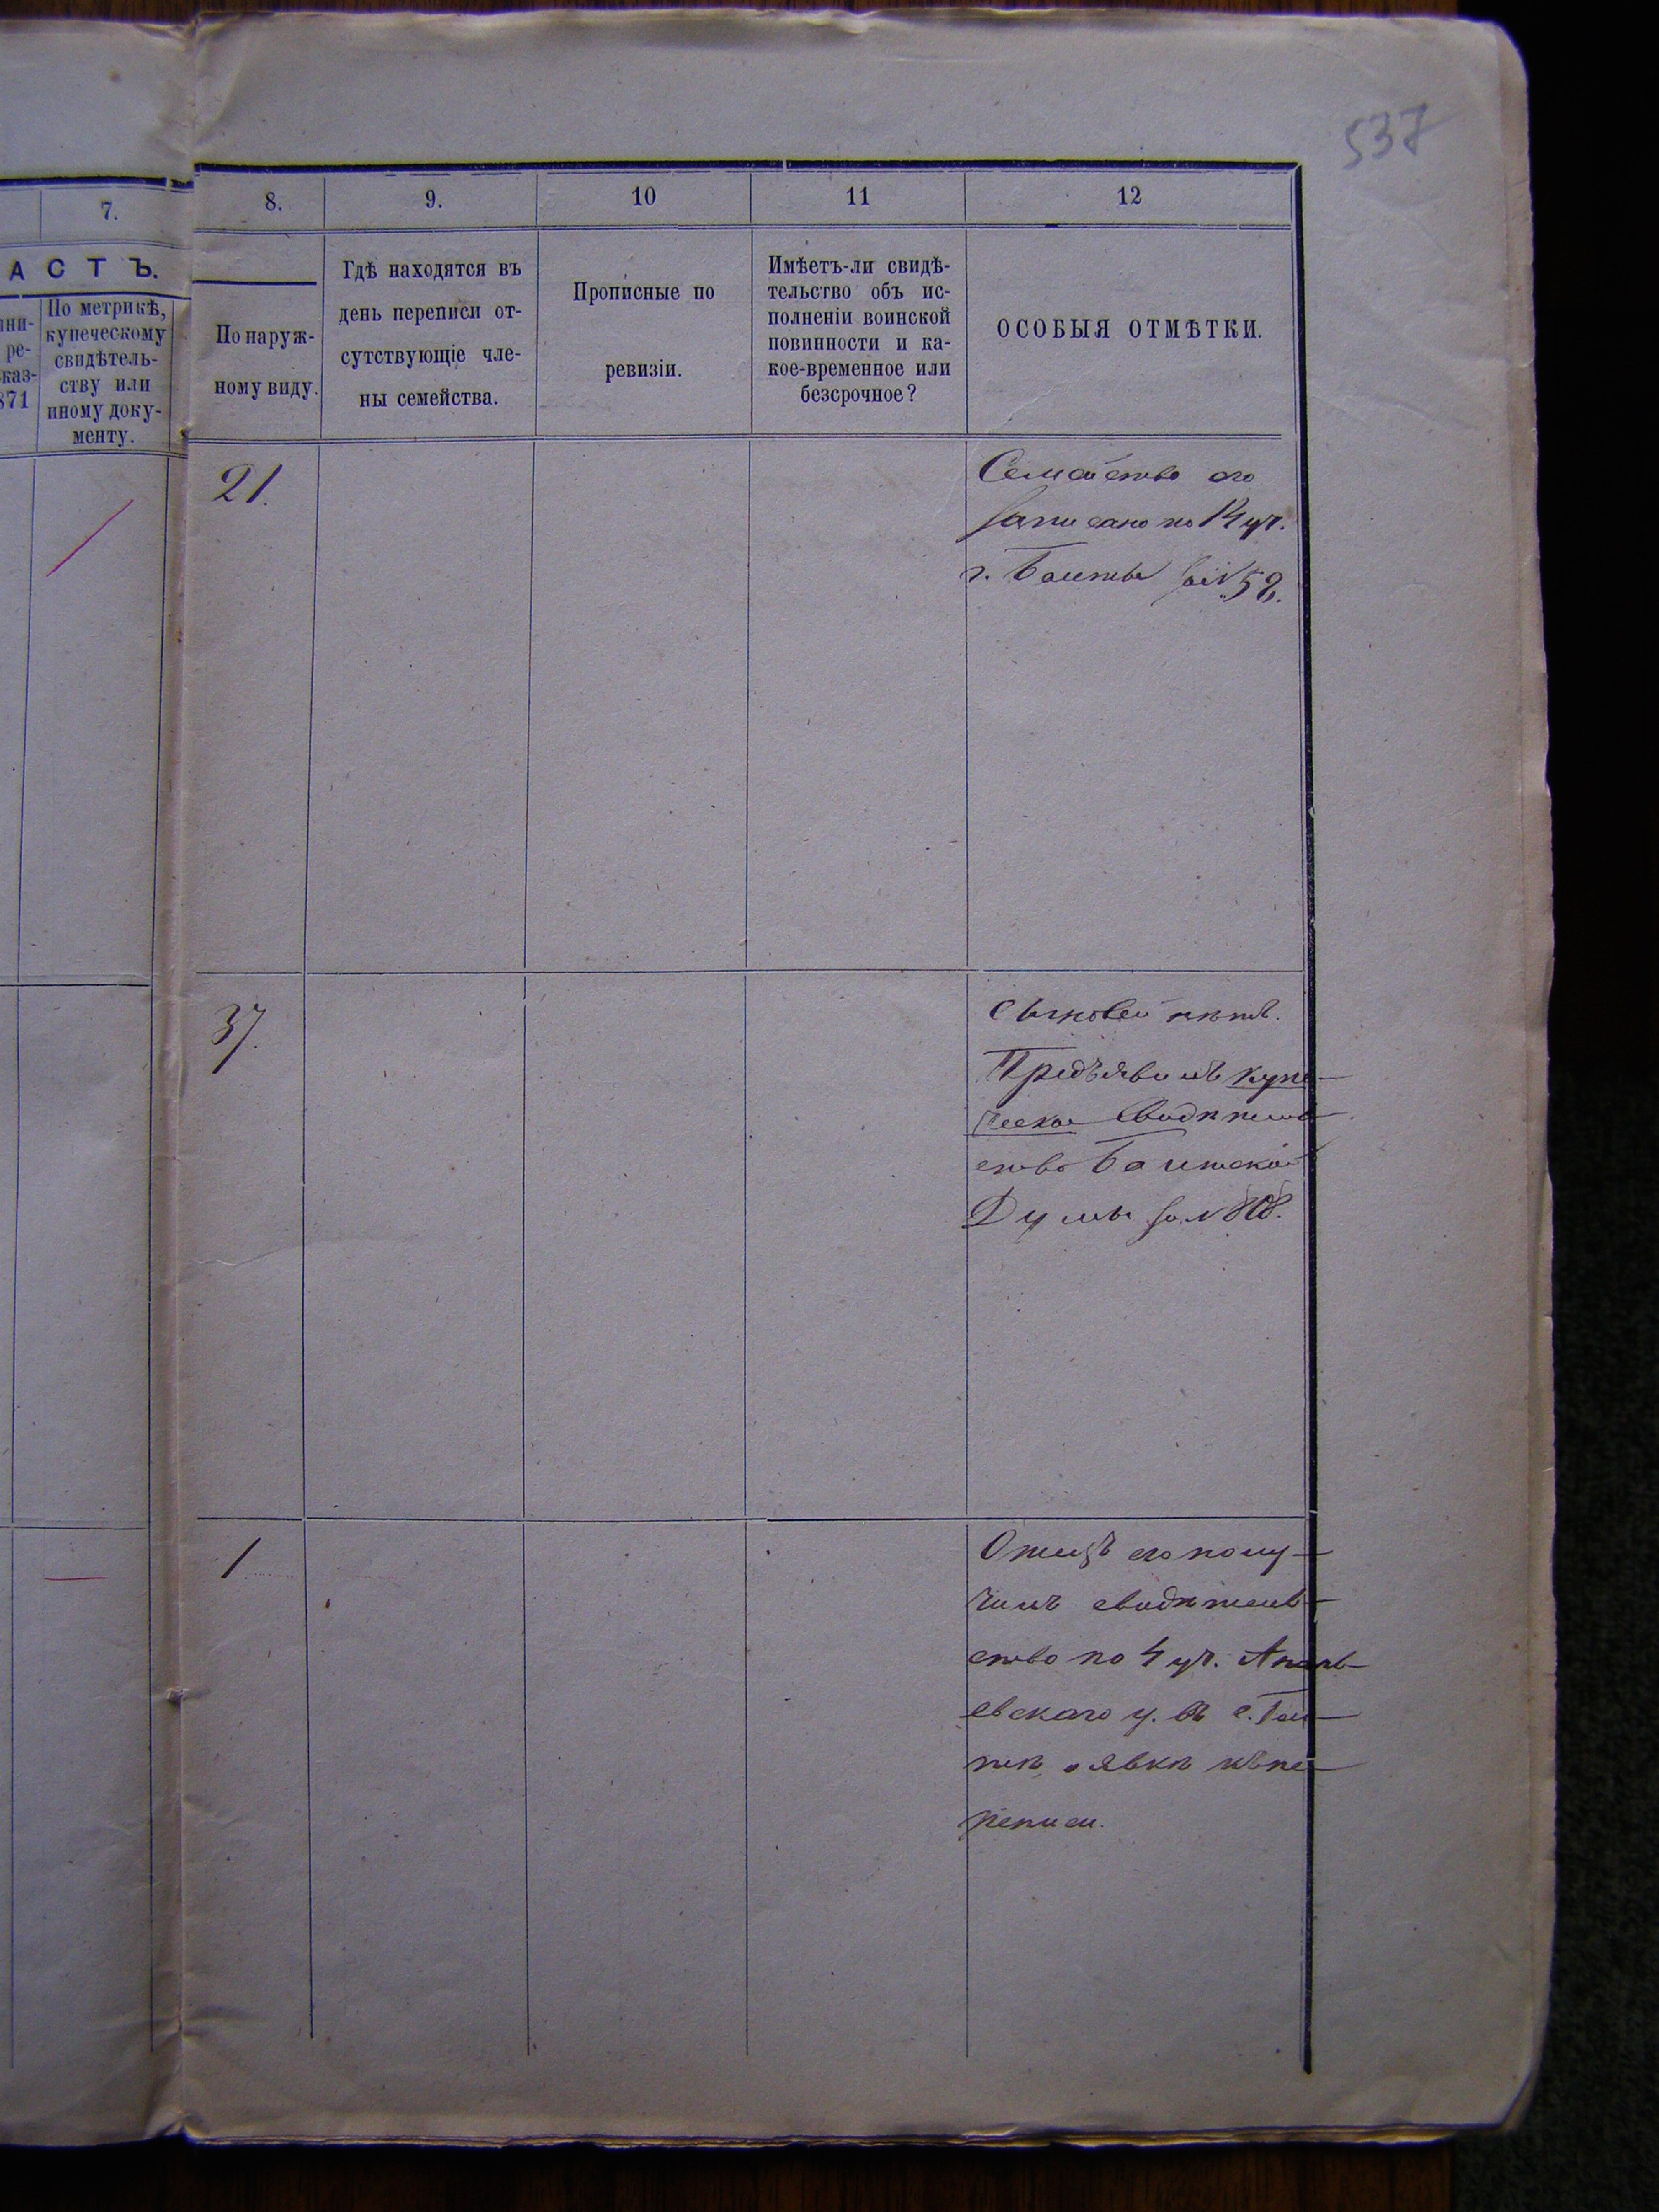 537
7.
8.
9.
10
11
12
АСТЪ.
По метрикѣ,
купеческому
свидѣтель-
ству или
иному доку-
менту.
ре-
каз-
871
По наруж-
ному виду.
Гдѣ находятся въ
день переписи от-
сутствующіе чле-
ны семейства.
Прописные по
ревизіи.
Имѣетъ-ли свидѣ-
тельство объ ис-
полненіи воинской
повинности и ка-
кое-временное или
безсрочное?
ОСОБЫЯ ОТМѢТКИ.
21.
Семейство его
записано по 14 уч.
г. Балты за № 58.
37.
Сыновей нѣтъ.
Предъявилъ купе-
ческое свидѣтель-
ство Балтской
Думы за №
1
Отецъ его полу-
чилъ свидѣтель-
ство по 4 уч. Ананьевскаго у. въ с.
о явкѣ къ пе-
реписи.